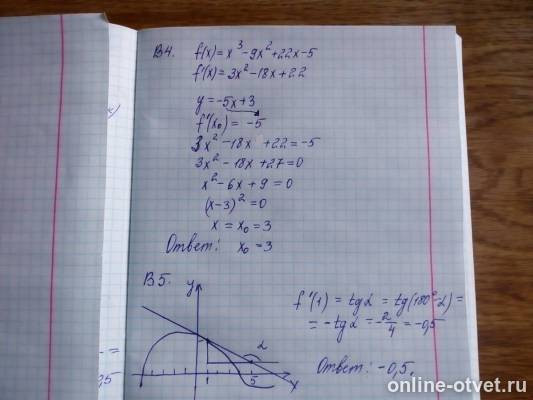 В4. f(x) = x³ - 9x² + 22x - 5
f'(x) = 3x² - 18x + 22
y = -5x + 3
f'(x₀) = -5
3x² - 18x + 22 = -5
3x² - 18x + 27 = 0
x² - 6x + 9 = 0
(x - 3)² = 0
x = x₀ = 3
Ответ: x₀ = 3
В5.
y
f'(1) = tg α = tg(180° - α) =
= -tg α = -2/4 = -0,5
α
1
5
x
Ответ: -0,5.
=
0,5
online-otvet.ru